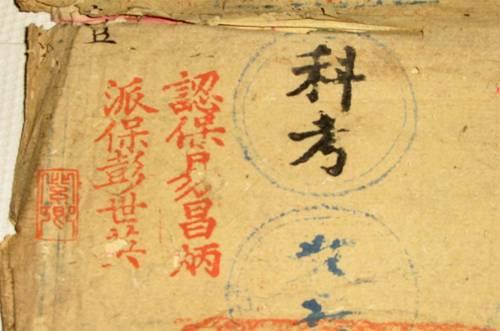 科考
認保易昌炳
派保彭世英